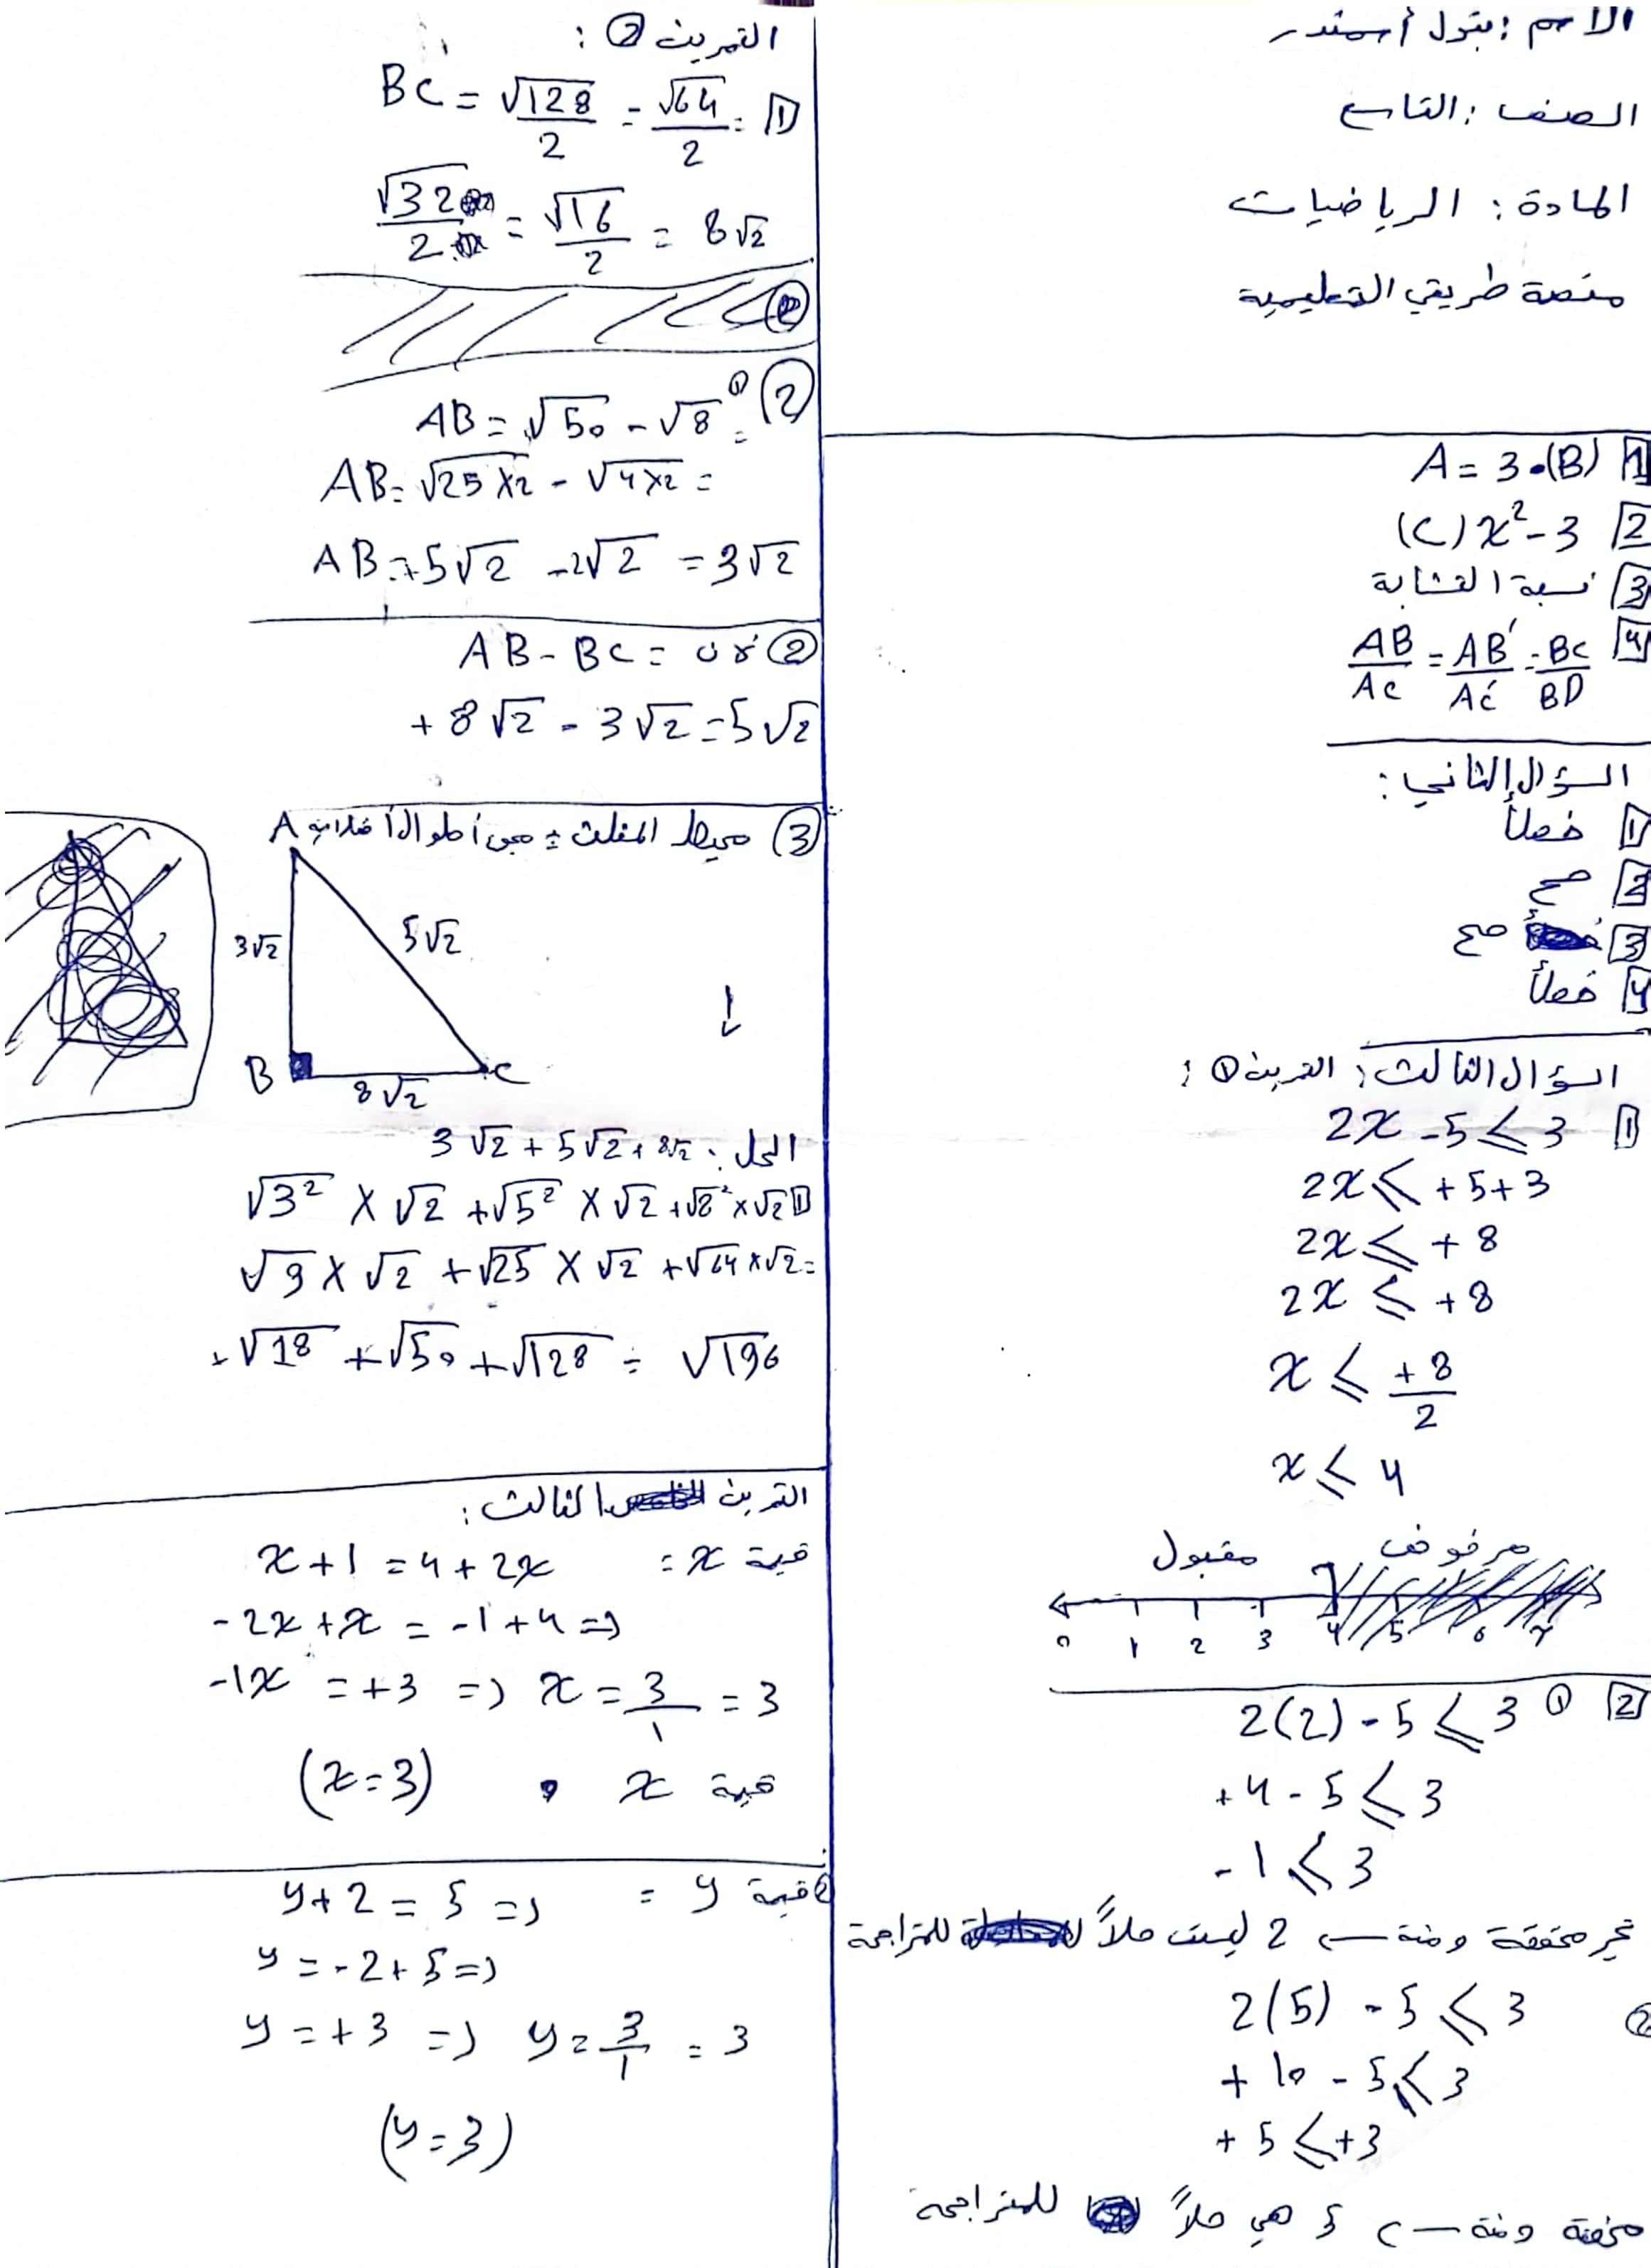 الاسم : بتول أسمندر
الصف : التاسع
المادة : الرياضيات
منصة طريقي التعليمية
1 A = 3 •(B)
2 (C) x² - 3
3 نسبة التشابة
4 AB/AC = AB'/AC' = BC/BD
السؤال الثاني :
1 خطأ
2 صح
3 صح
4 خطأ
السؤال الثالث : التمرين ① :
1 2x - 5 ⩽ 3
2x ⩽ + 5 + 3
2x ⩽ + 8
2x ⩽ + 8
x ⩽ +8/2
x ⩽ 4
مقبول مرفوض
0 1 2 3 4 5 6 7
2 ① 2(2) - 5 ⩽ 3
+4 - 5 ⩽ 3
-1 ⩽ 3
غير محققة ومنه ← 2 ليست حلاً للمتراجحة
② 2(5) - 5 ⩽ 3
+ 10 - 5 ⩽ 3
+ 5 ⩽ +3
محققة ومنه ← 5 هي حلاً للمتراجحة
التمرين ② :
1 BC = √128/2 = √64/2 =
√32/2 = √16/2 = 8√2
② ① AB = √50 - √8 =
AB = √25×2 - √4×2 =
AB = +5√2 - 2√2 = 3√2
② AB - BC =
+ 8√2 - 3√2 = 5√2
③ محيط المثلث = مجموع أطوال أضلاعه
A
3√2 5√2
B C
8√2
الحل : 3√2 + 5√2 + 8√2
1 √3² × √2 + √5² × √2 + √8² × √2
√9 × √2 + √25 × √2 + √64 × √2 =
+√18 + √50 + √128 = √196
التمرين الثالث :
قيمة x = x + 1 = 4 + 2x
-2x + x = -1 + 4 =>
-1x = +3 => x = 3/1 = 3
قيمة x (x = 3)
② قيمة y = y + 2 = 5 =>
y = -2 + 5 =>
y = +3 => y = 3/1 = 3
(y = 3)